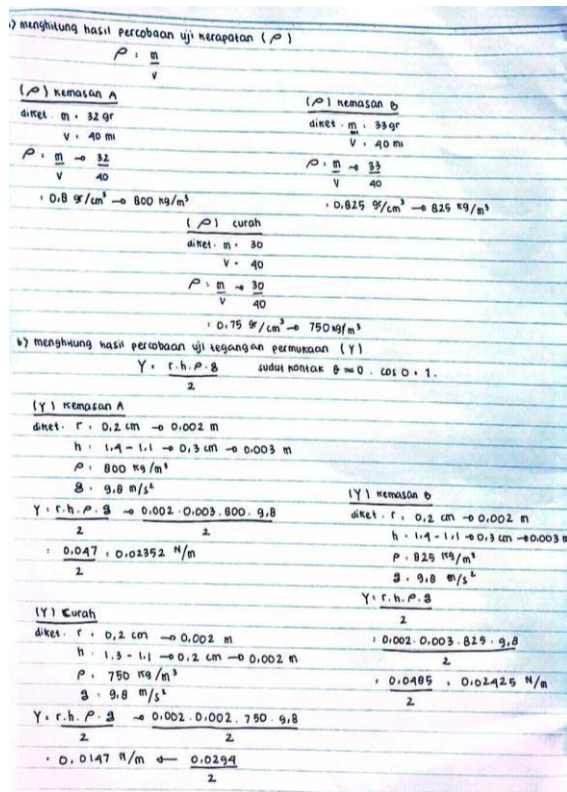 a) menghitung hasil percobaan uji kerapatan (ρ)
ρ = m/v
(ρ) Kemasan A
diket. m = 32 gr
v = 40 ml
ρ = m/v → 32/40
= 0,8 gr/cm³ → 800 kg/m³
(ρ) kemasan B
diket. m = 33 gr
v = 40 ml
ρ = m/v → 33/40
= 0,825 gr/cm³ → 825 kg/m³
(ρ) curah
diket. m = 30
v = 40
ρ = m/v → 30/40
= 0,75 gr/cm³ → 750 kg/m³
b) menghitung hasil percobaan uji tegangan permukaan (γ)
γ = r.h.ρ.g/2 sudut kontak θ ≈ 0. cos 0 = 1.
(γ) Kemasan A
diket. r = 0,2 cm → 0,002 m
h = 1,4 - 1,1 → 0,3 cm → 0,003 m
ρ = 800 kg/m³
g = 9,8 m/s²
γ = r.h.ρ.g/2 → 0,002 . 0,003 . 800 . 9,8/2
= 0,047/2 = 0,02352 N/m
(γ) Kemasan B
diket. r = 0,2 cm → 0,002 m
h = 1,4 - 1,1 → 0,3 cm → 0,003 m
ρ = 825 kg/m³
g = 9,8 m/s²
γ = r.h.ρ.g/2
= 0,002 . 0,003 . 825 . 9,8/2
= 0,0485/2 = 0,02425 N/m
(γ) Curah
diket. r = 0,2 cm → 0,002 m
h = 1,3 - 1,1 → 0,2 cm → 0,002 m
ρ = 750 kg/m³
g = 9,8 m/s²
γ = r.h.ρ.g/2 → 0,002 . 0,002 . 750 . 9,8/2
= 0,0147 N/m ← 0,0294/2